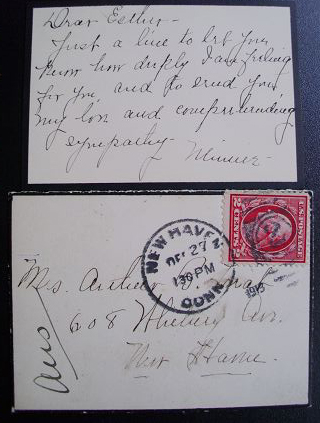 Dear Esther -
Just a line to let you
know how deeply I am feeling
for you, and to send you
my love and comprehending
sympathy -
Minnie -
NEW HAVEN
DEC 27
130 PM
CONN.
U.S. POSTAGE
2 CENTS 2
Mrs. Arthur
608 Whitney Av.
New Haven.
Ans